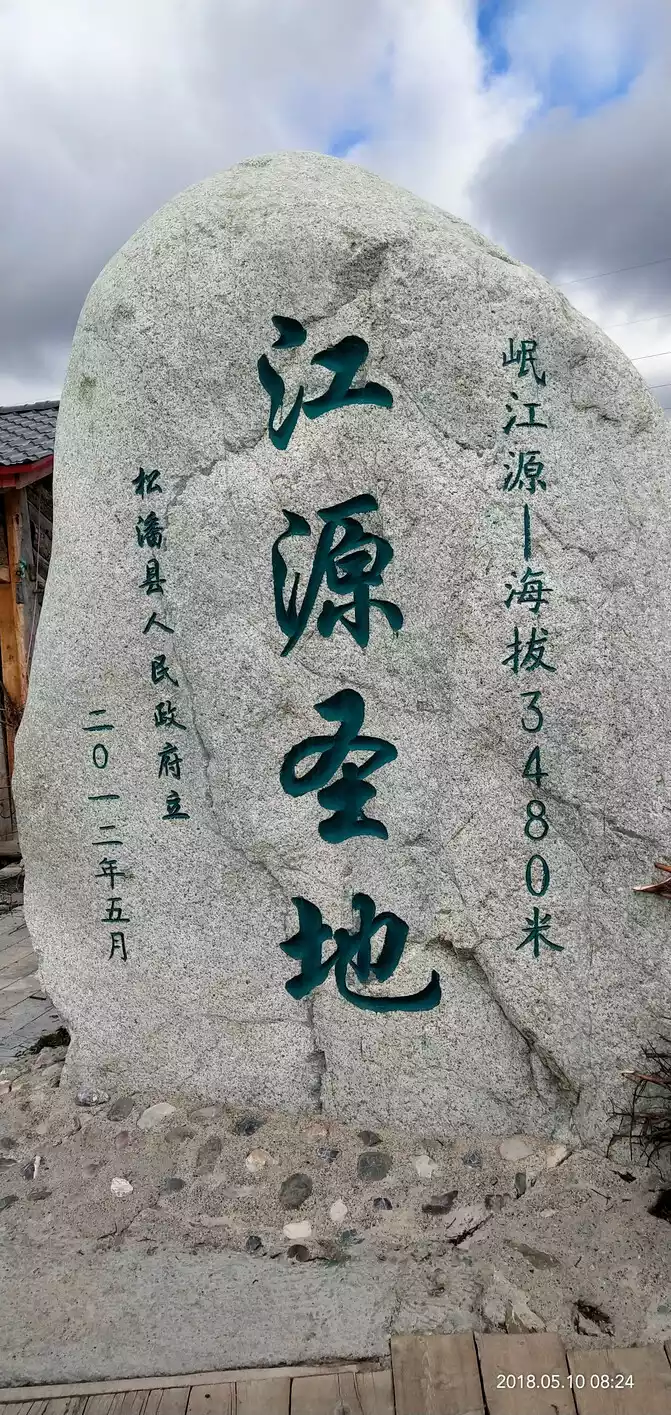 岷江源—海拔3480米
江源圣地
松潘县人民政府立
二0一二年五月
2018.05.10 08:24